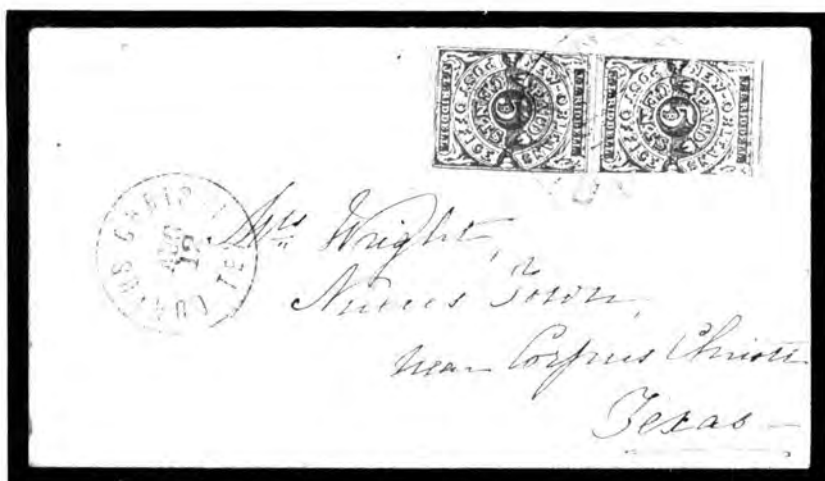 NEW-ORLEANS POST OFFICE
5 CENTS PAID
J.L.RIDDELL
NEW-ORLEANS POST OFFICE
5 CENTS PAID
J.L.RIDDELL
CORPUS CHRISTI
AUG
Mrs Wright,
Nueces Town,
near Corpus Christi
Texas